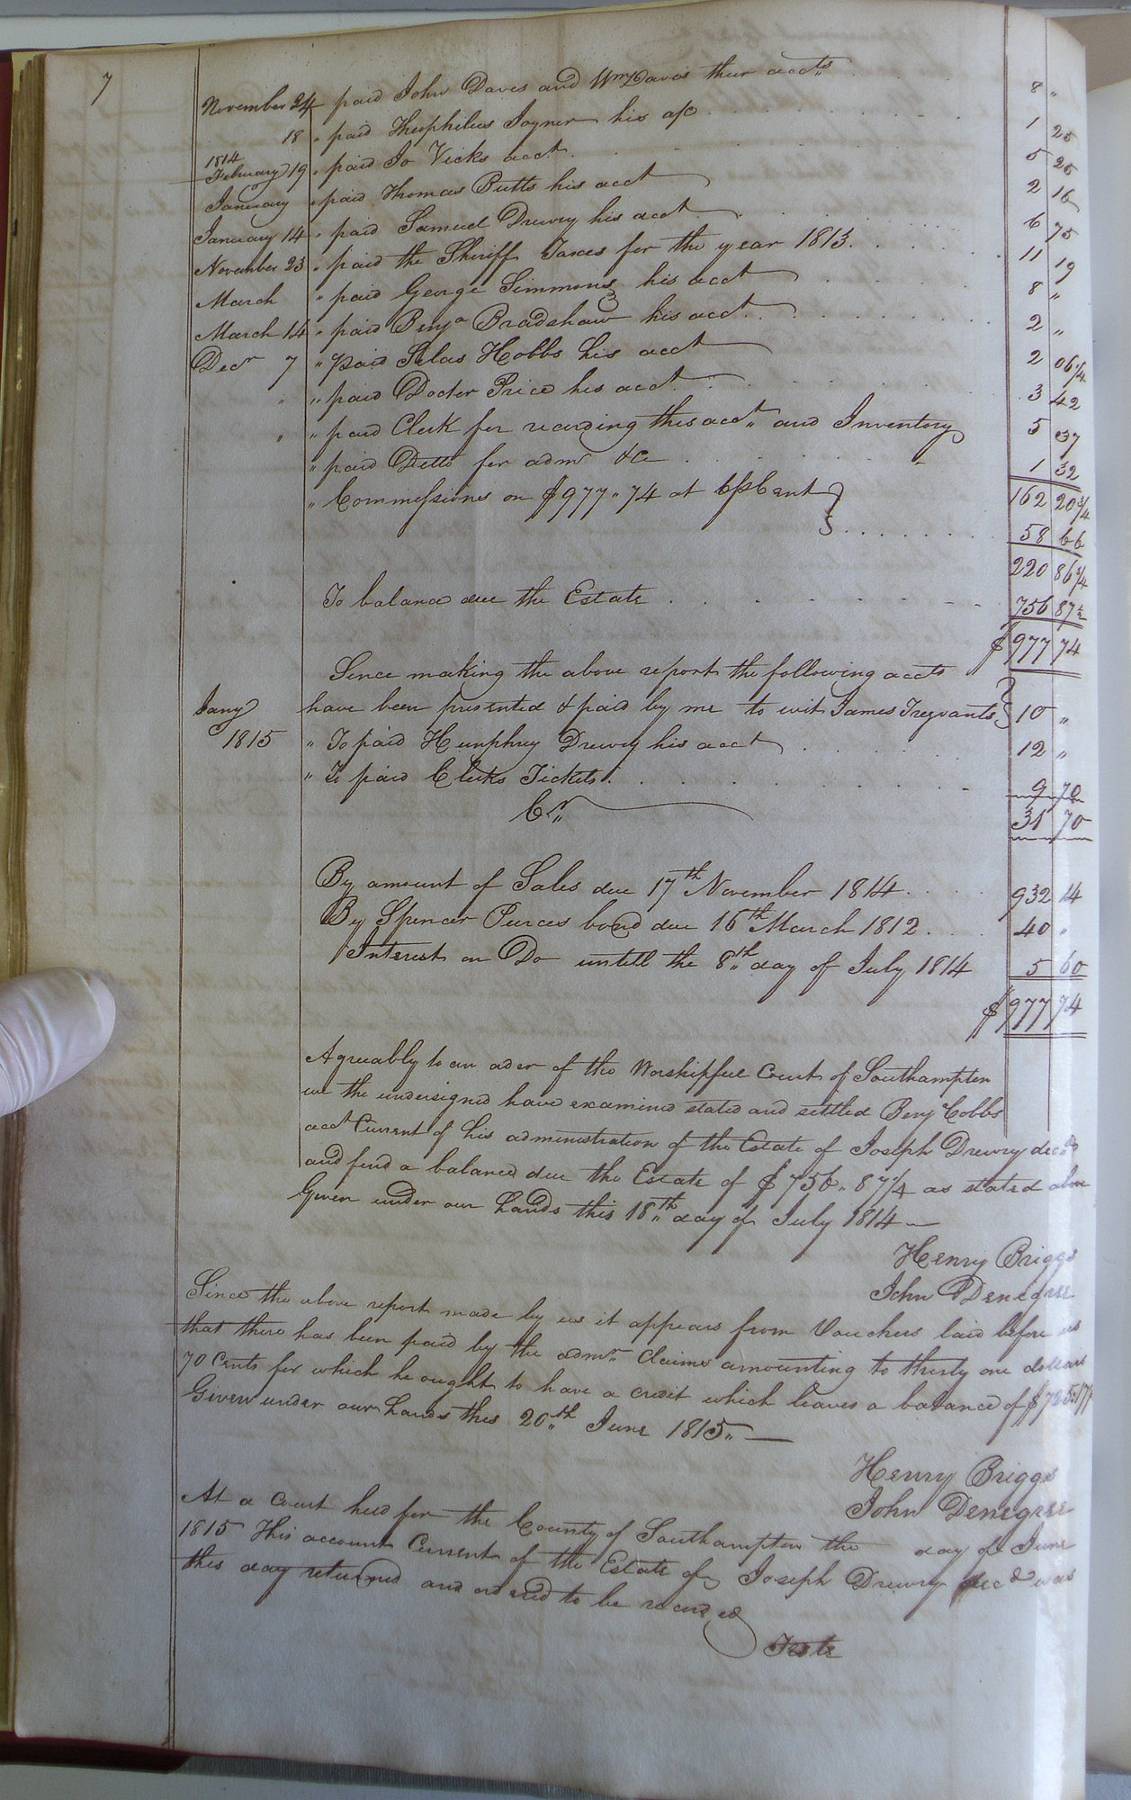 7
November 24 " paid John Daves and Wm Daves their accts 8 "
18 " paid Theophilus Joyner his a/c 1 25
1814
February 19 " paid Jo Vicks acct 5 25
January " paid Thomas Butts his acct 2 16
January 14 " paid Samuel Drewry his acct 6 75
November 23 " paid the Sheriff Taxes for the year 1813 11 19
March " paid George Simmons his acct 8 "
March 14 " paid Benja Bradshaw his acct 2 "
Decr 7 " paid Silas Hobbs his acct 2 06 1/4
" " paid Docter Price his acct 3 42
" " paid Clerk for recording this acct " and Inventory 5 37
" paid Ditto for admr &c 1 32
" Commissions on $977 " 74 at 6 p Cent 162 20 3/4
58 66
220 86 3/4
To balance due the Estate 756 87 1/4
$ 977 74
Since making the above report the following accts
Jany have been presented & paid by me to wit James Trezvants 10 "
1815 " To paid Humphrey Drewry his acct 12 "
" To paid Clerks Tickets 9 70
Cr " 31 70
By amount of Sales due 17th November 1814 932 14
By Spencer Pierces bond due 16th March 1812 40 "
Interest on Do untill the 8th day of July 1814 5 60
$ 977 74
Agreeably to an oder of the Worshipful Court of Southampton
we the undersigned have examined stated and settled Benj Cobbs
acct Current of his administration of the Estate of Joseph Drewry decd
and find a balance due the Estate of $756 " 87 1/4 as stated above
Given under our hands this 18th day of July 1814
Henry Briggs
John Denegree
Since the above report made by us it appears from Vouchers laid before us
that there has been paid by the admr Claims amounting to thirty one dollars
70 Cents for which he ought to have a credit which leaves a balance of
Given under our hands this 20th June 1815
Henry Briggs
John Denegree
At a Court held for the County of Southampton the day of June
1815 This account Current of the Estate of Joseph Drewry decd was
this day returned and ordered to be recorded
Teste